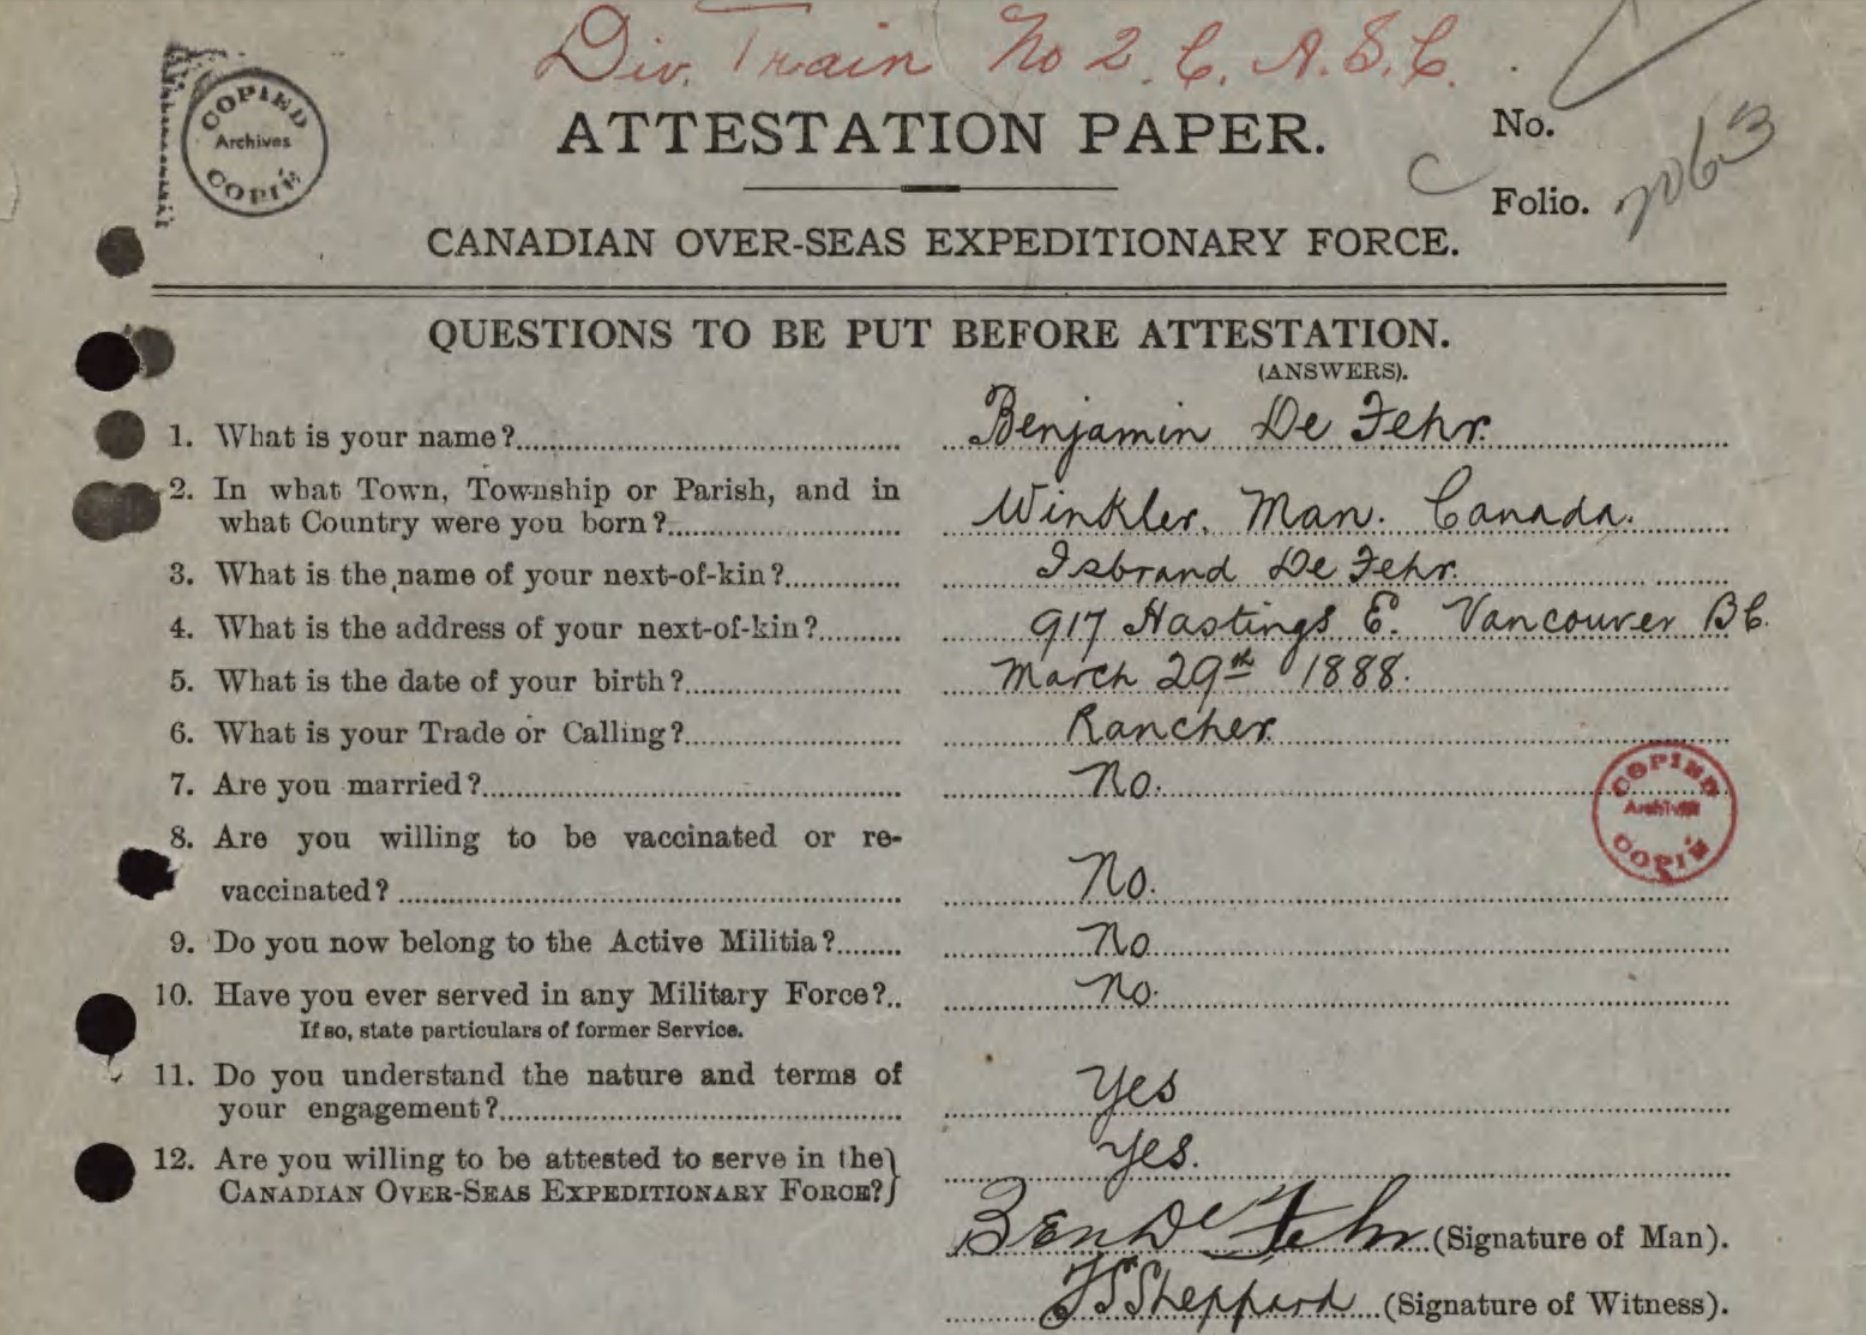 Div. Train No 2. C. A. S. C.
COPIED
Archives
COPIÉ
ATTESTATION PAPER.
No.
Folio.
CANADIAN OVER-SEAS EXPEDITIONARY FORCE.
QUESTIONS TO BE PUT BEFORE ATTESTATION.
(ANSWERS).
1. What is your name? Benjamin De Fehr.
2. In what Town, Township or Parish, and in
what Country were you born? Winkler. Man. Canada.
3. What is the name of your next-of-kin? Isbrand De Fehr.
4. What is the address of your next-of-kin? 917 Hastings E. Vancouver BC.
5. What is the date of your birth? March 29th 1888.
6. What is your Trade or Calling? Rancher
7. Are you married? No.
COPIED
Archives
COPIÉ
8. Are you willing to be vaccinated or re-
vaccinated? No.
9. Do you now belong to the Active Militia? No
10. Have you ever served in any Military Force? No.
If so, state particulars of former Service.
11. Do you understand the nature and terms of
your engagement? Yes
12. Are you willing to be attested to serve in the Yes.
CANADIAN OVER-SEAS EXPEDITIONARY FORCE?
Ben De Fehr (Signature of Man).
Sheppard (Signature of Witness).